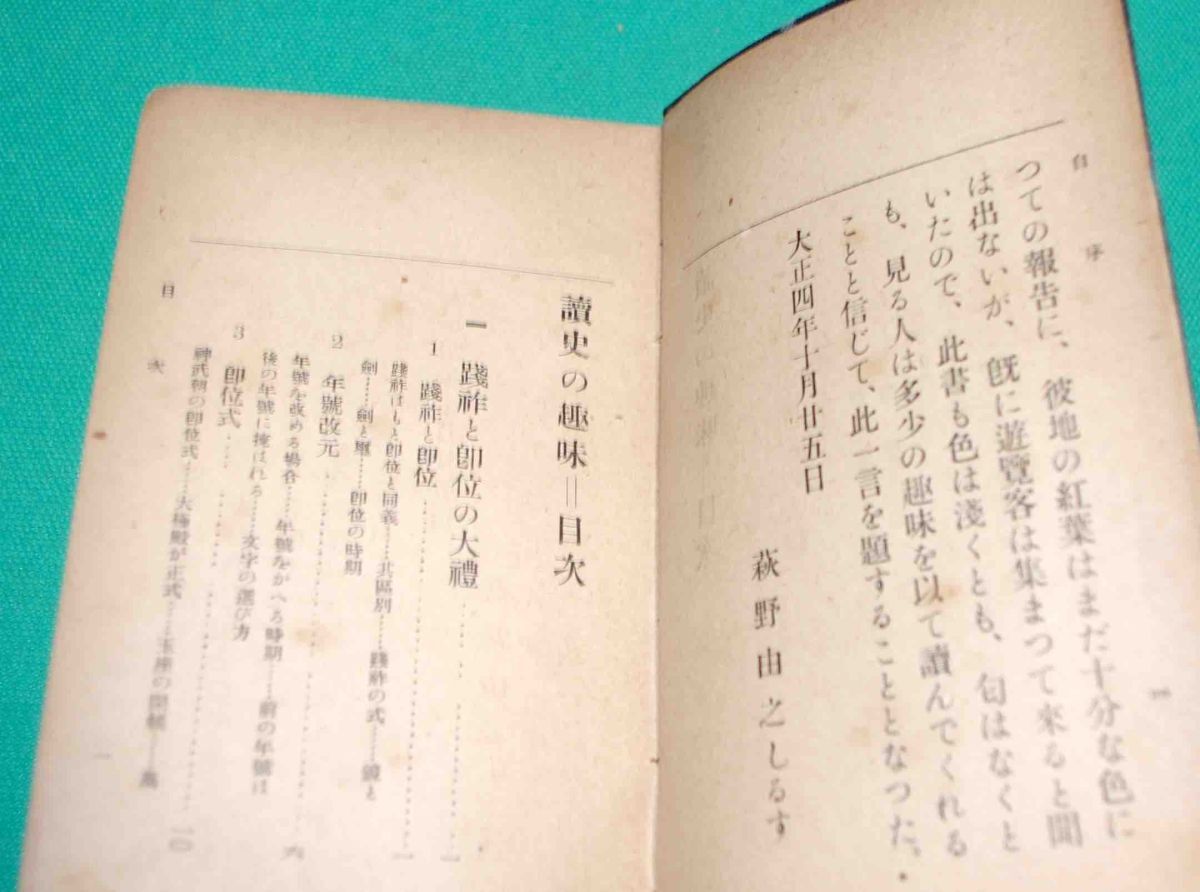 自序
つての報告に、彼地の紅葉はまだ十分な色に
は出ないが、既に遊覽客は集まつて來ると聞
いたので、此書も色は淺くとも、匂はなくと
も、見る人は多少の趣味を以て讀んでくれる
ことと信じて、此一言を題することとなつた。
大正四年十月廿五日
萩野由之しるす
讀史の趣味=目次
一 踐祚と卽位の大禮
1 踐祚と卽位……一
踐祚はもと卽位と同義……其區別……踐祚の式……鏡と
劍……劍と璽……卽位の時期
2 年號改元……六
年號を改める場合……年號をかへる時期……前の年號は
後の年號に捨ばれる……文字の選び方
3 卽位式……一〇
神武朝の卽位式……大極殿が正式……玉座の
目次
一